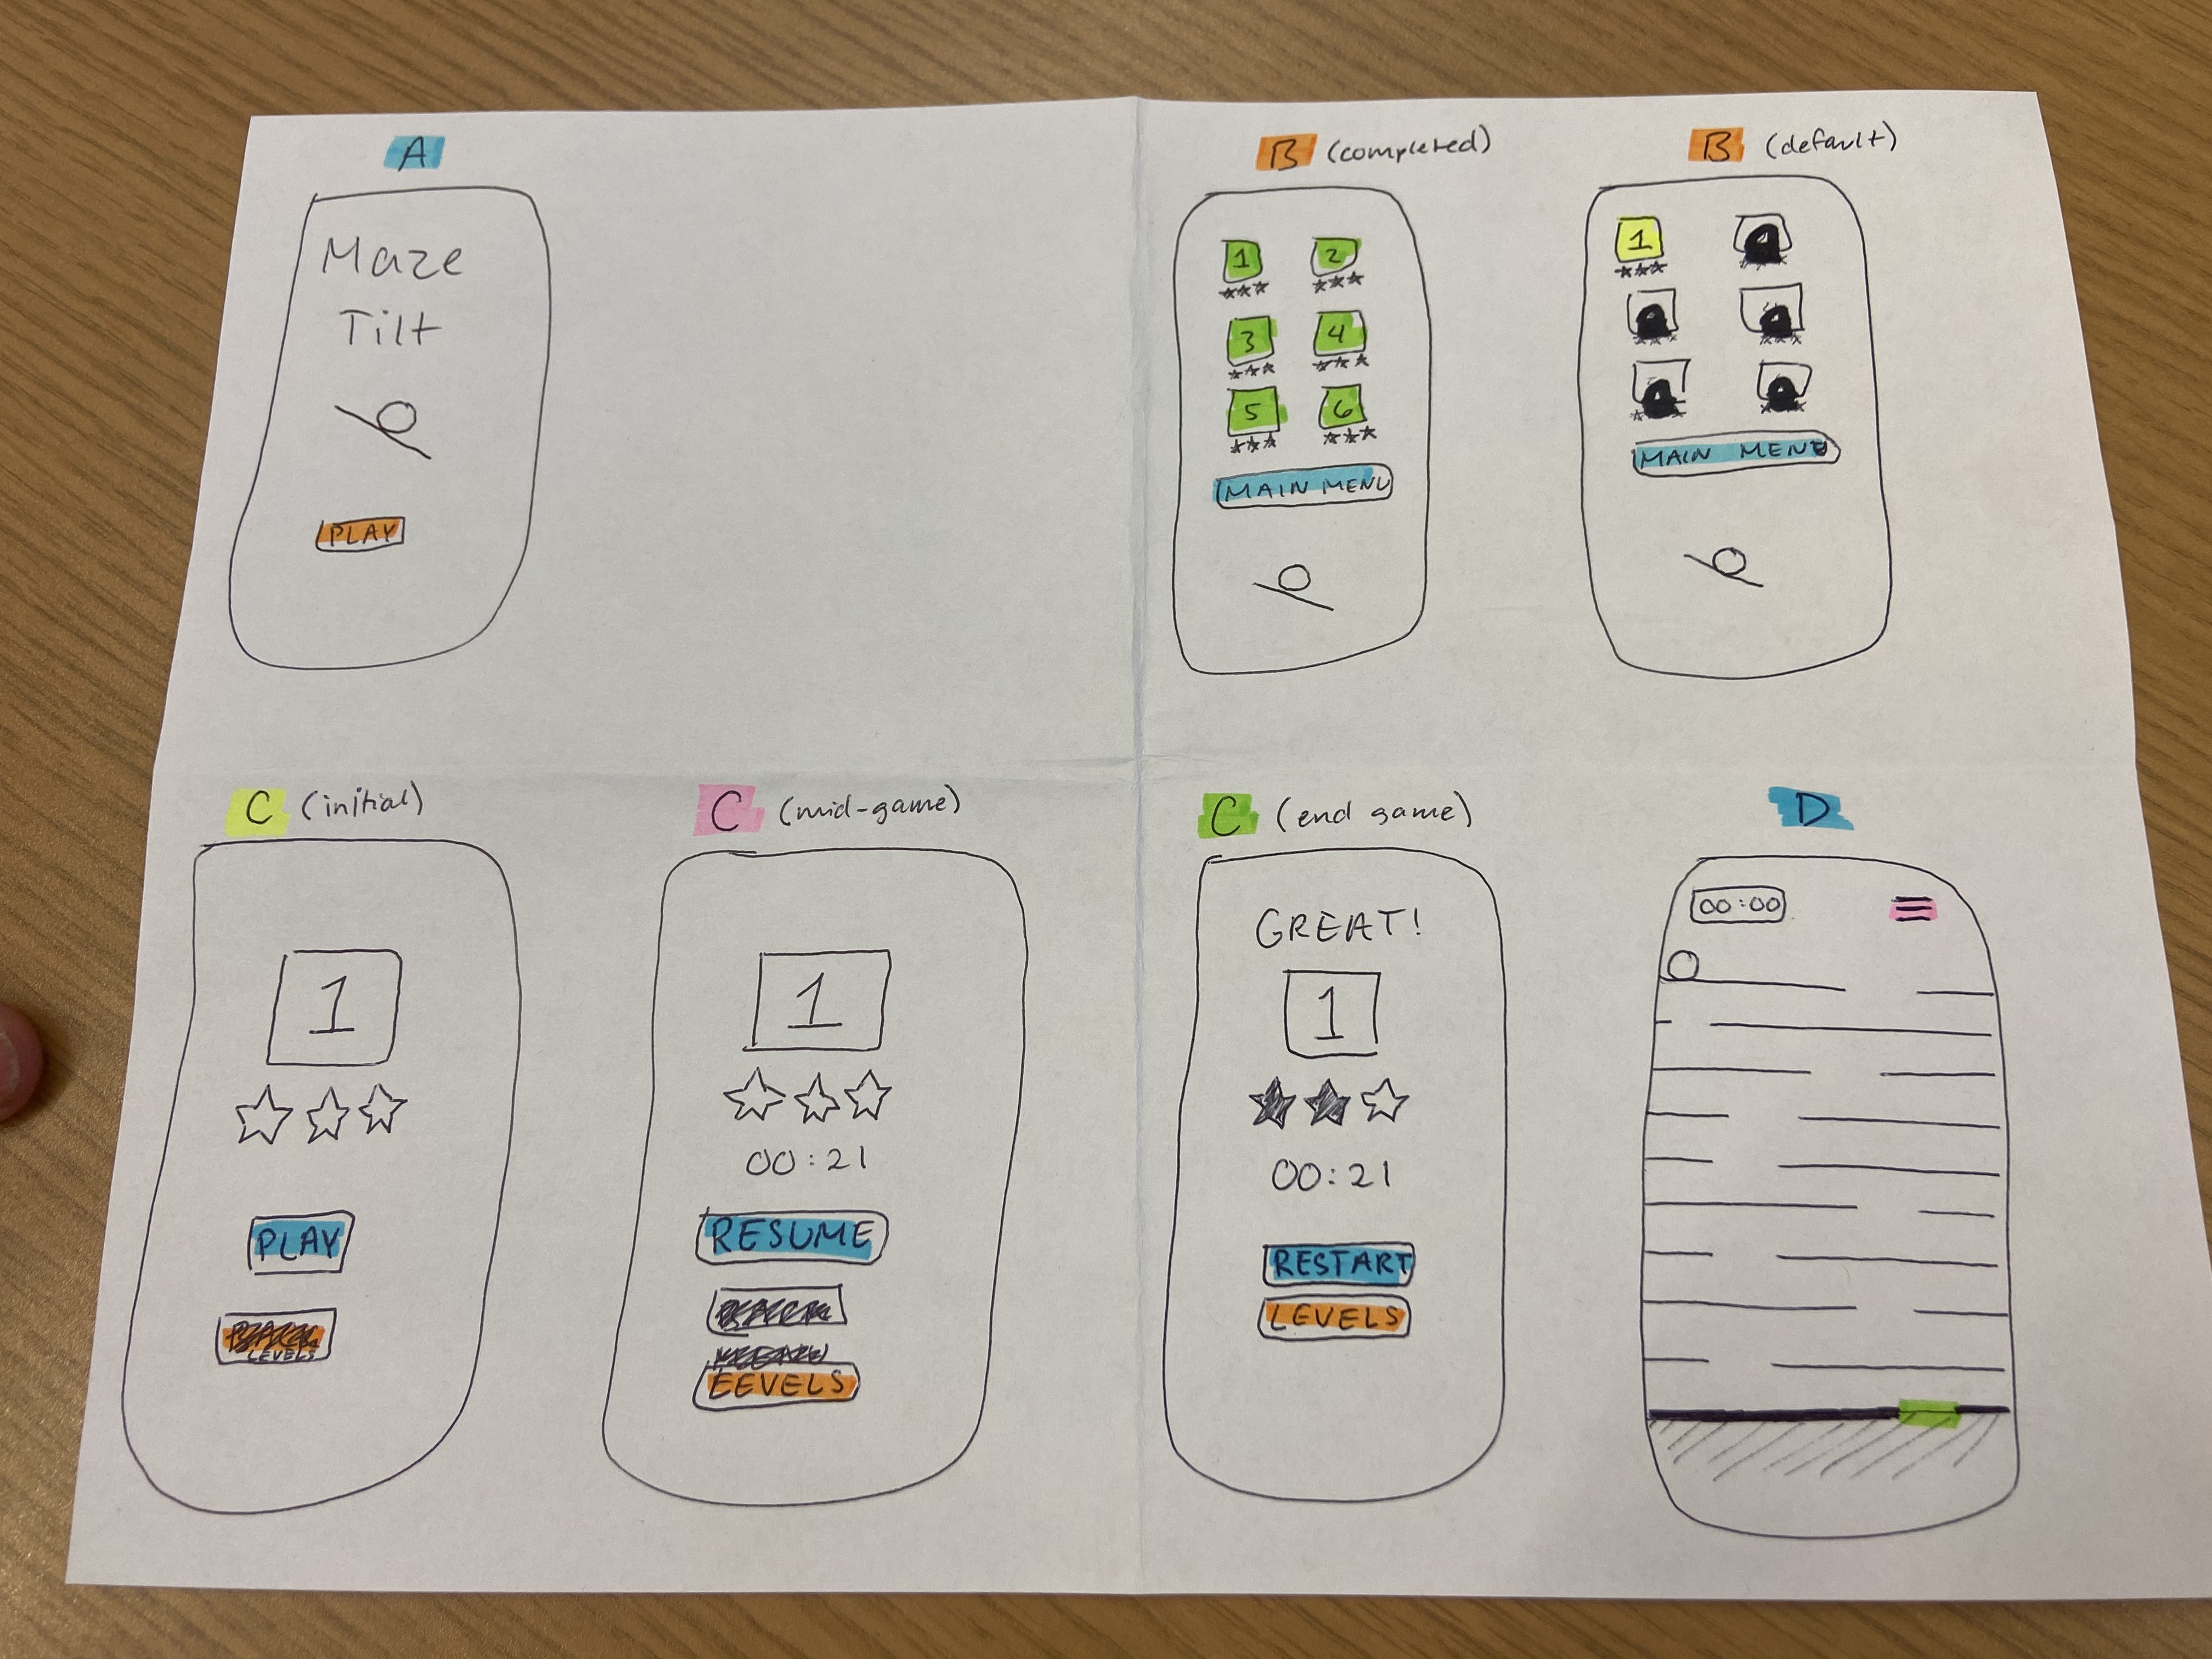 A
Maze
Tilt
PLAY
B (completed)
1 2
3 4
5 6
MAIN MENU
B (default)
1
MAIN MENU
C (initial)
1
PLAY
LEVELS
C (mid-game)
1
00:21
RESUME
LEVELS
C (end game)
GREAT!
1
00:21
RESTART
LEVELS
D
00:00